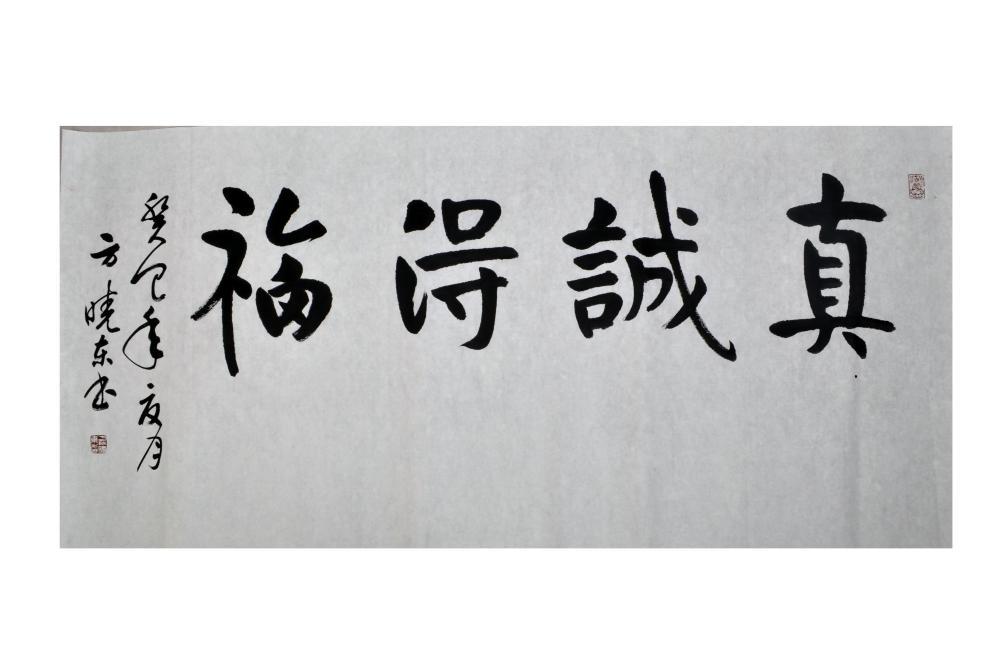 真誠得福
癸巳年夏月
方曉东书